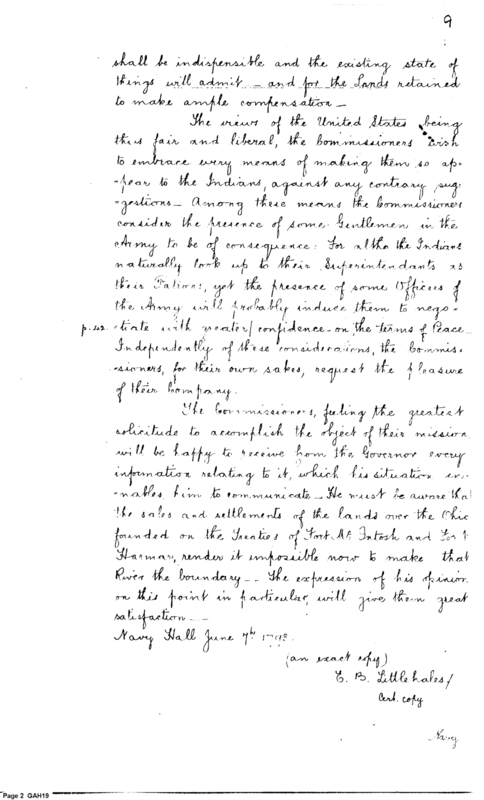 9
shall be indispensible and the existing state of
things will admit - and for the Lands retained
to make ample compensation -
The views of the United States being
thus fair and liberal, the Commissioners wish
to embrace every means of making them so ap-
-pear to the Indians, against any contrary sug-
-gestions - Among these means the Commissioners
consider the presence of some Gentlemen in the
Army to be of consequence: For altho the Indians
naturally look up to their Superintendants as
their Patrons, yet the presence of some Officers of
the Army will probably induce them to nego-
p. 42. -tiate with greater confidence on the terms of Peace
Independently of these considerations, the Commis-
-sioners, for their own sakes, request the pleasure
of their Company.
The Commissioners, feeling the greatest
solicitude to accomplish the object of their mission
will be happy to receive from the Governor every
information relating to it, which his situation en-
-nables him to communicate - He must be aware that
the sales and settlements of the lands over the Ohio
founded on the Treaties of Fort McIntosh and Fort
Harmar, render it impossible now to make that
River the boundary -- The expression of his opinion
on this point in particular, will give them great
satisfaction --
Navy Hall June 7th 1793.
(an exact copy)
E. B. Littlehales/
Cert. copy
Navy
Page 2 GAH19